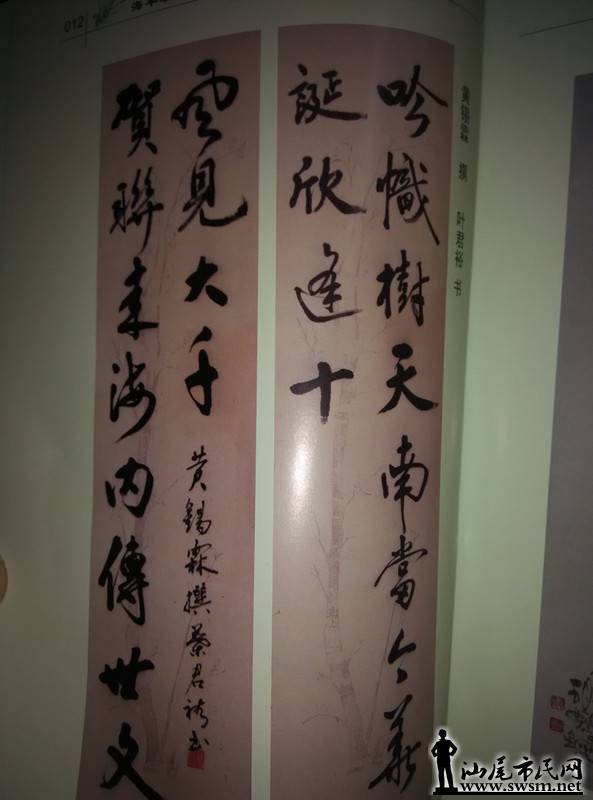 012
海丰
黄锡霖 撰 叶君裕 书
吟幟樹天南當今華
誕欣逢十
賀聯来海内傳世文
風見大千
黄錫霖撰葉君裕书
汕尾市民网
www.swsm.net